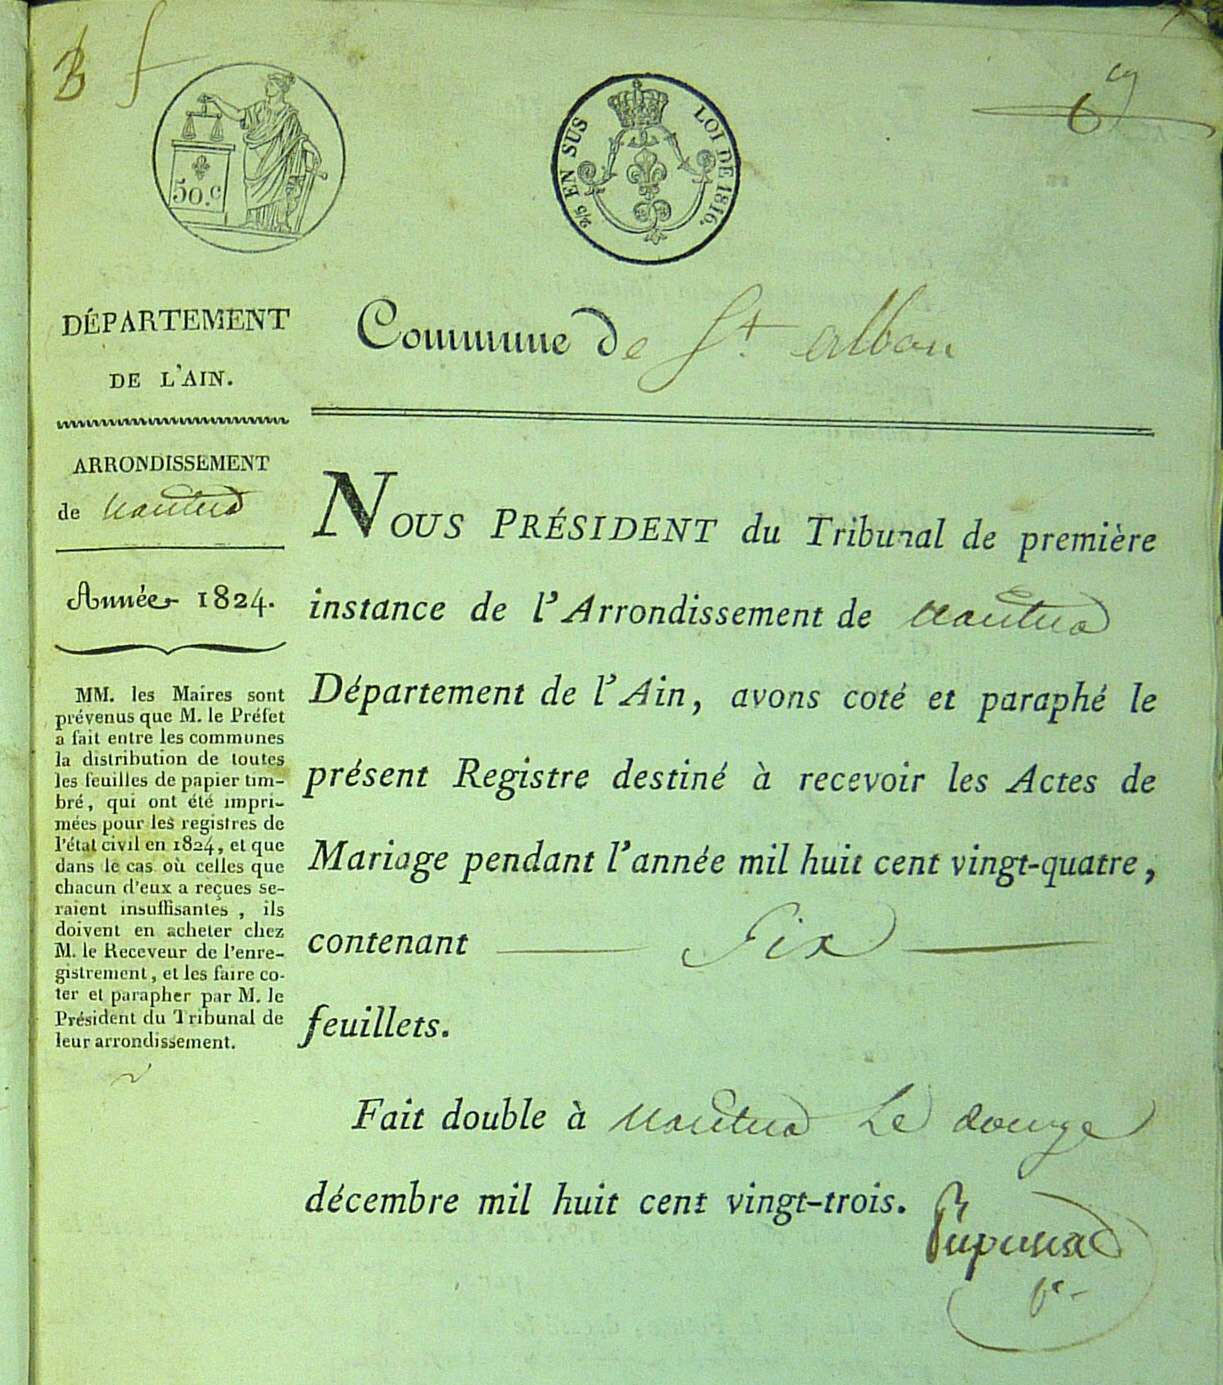 50.c
2/5 EN SUS LOI DE 1816.
6
DÉPARTEMENT
DE L'AIN.
ARRONDISSEMENT
de Nantua
Année 1824.
MM. les Maires sont
prévenus que M. le Préfet
a fait entre les communes
la distribution de toutes
les feuilles de papier tim-
bré, qui ont été impri-
mées pour les registres de
l'état civil en 1824, et que
dans le cas où celles que
chacun d'eux a reçues se-
raient insuffisantes, ils
doivent en acheter chez
M. le Receveur de l'enre-
gistrement, et les faire co-
ter et parapher par M. le
Président du Tribunal de
leur arrondissement.
Commune de St. alban
NOUS PRÉSIDENT du Tribunal de première
instance de l'Arrondissement de Nantua
Département de l'Ain, avons coté et paraphé le
présent Registre destiné à recevoir les Actes de
Mariage pendant l'année mil huit cent vingt-quatre,
contenant Six
feuillets.
Fait double à Nantua Le douze
décembre mil huit cent vingt-trois.